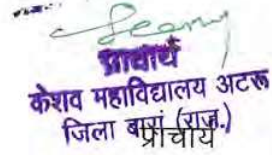 प्राचार्य
केशव महाविद्यालय अटरू
जिला बारां (राज.)
प्राचार्य